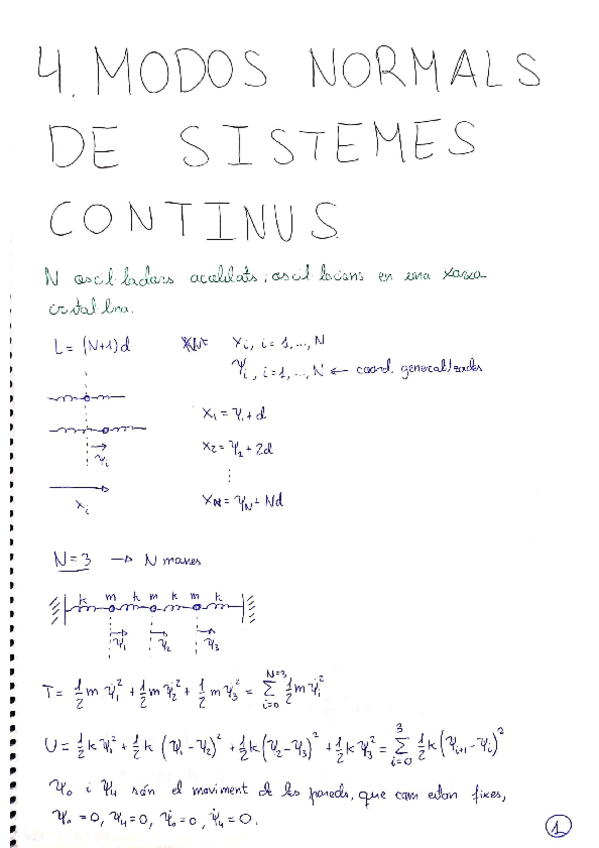 4. MODOS NORMALS
DE SISTEMES
CONTINUS
N oscil·ladors acoblats: oscil·lacions en una xarxa
cristal·lina.
L = (N+1)d
xᵢ, i = 1, ..., N
ψᵢ, i = 1, ..., N ← coord. generalitzades
x₁ = ψ₁ + d
x₂ = ψ₂ + 2d
⋮
x_N = ψ_N + Nd
ψᵢ
xᵢ
N = 3 → N masses
k m k m k m k
ψ₁ ψ₂ ψ₃
T = 1/2 m ψ̇₁² + 1/2 m ψ̇₂² + 1/2 m ψ̇₃² = Σ_{i=0}^{N=3} 1/2 m ψ̇ᵢ²
U = 1/2 k ψ₁² + 1/2 k (ψ₁ - ψ₂)² + 1/2 k (ψ₂ - ψ₃)² + 1/2 k ψ₃² = Σ_{i=0}^{3} 1/2 k (ψᵢ₊₁ - ψᵢ)²
ψ₀ i ψ₄ són el moviment de les parets, que com estan fixes,
ψ₀ = 0, ψ₄ = 0, ψ̇₀ = 0, ψ̇₄ = 0.
1